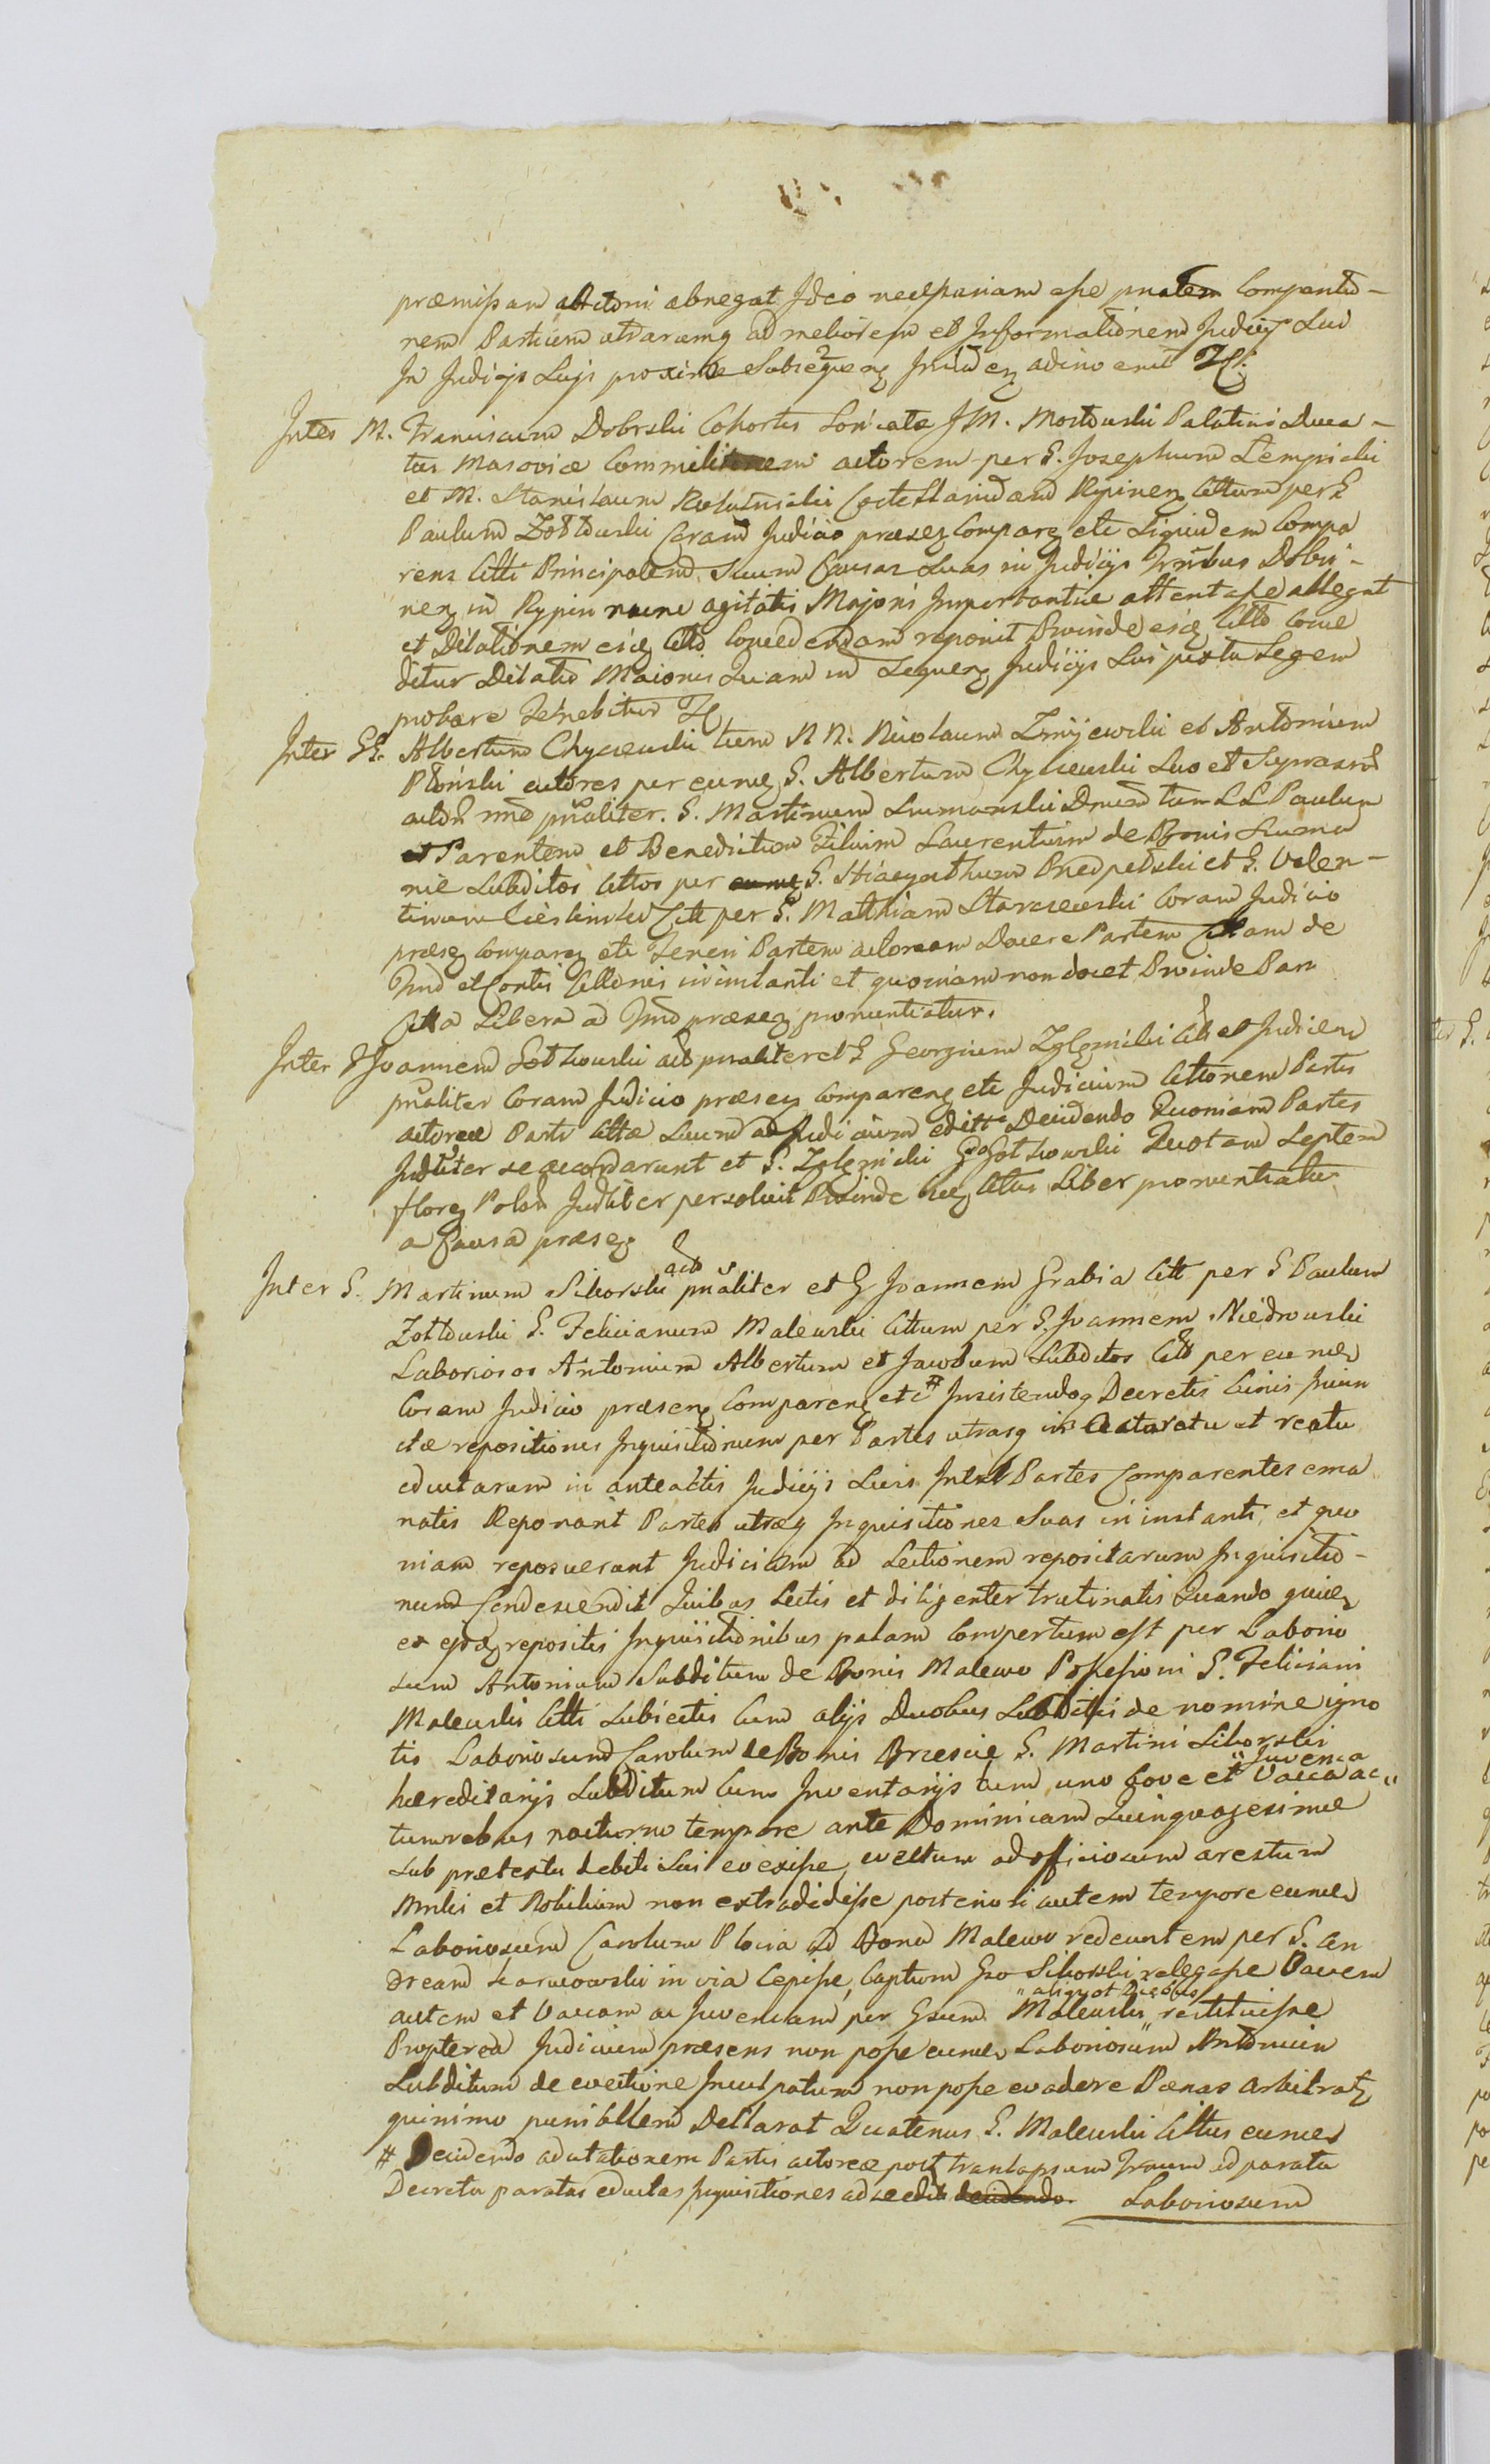 præmissam actctoni abnegat Jdeo necessariam esse pnalem Comparitio-
nem Partium utrarumq ad meliorem et Jnformationem Judicij Sui
Jn Judicijs Suis proxime Subsequen
Jnter M. Franciscum Dobrski Cohortis Loricatæ J M. Mostowski Palatini Duca-
tus Masoviæ Commilitonem actorem per G. Josephum Lempicki
et M. Stanislaum Castellanidam Rypinen Cittum per G
Paulum Zołtowski Coram Judicio præsen Comparen etc Siquidem Compa
rens Citti Principalem Suum Causas Suas in Judicijs Trribus Dobri-
nen in Rypin nunc agitatis Majoris Jmportantiæ attentasse allegat
et Dilationem eid Citto Concedendam reponit Proinde eid Citto Conce
ditur Dilatio Maioris Quam in Sequen Judicijs Suis juxta Legem
probare Tenebitur
Jnter GG. Albertum Chyczewski tum N N. Nicolaum Zmijewski et Antonium
Płoński actores per eumd G. Albertum Chyczewski Suo et Supraxro
actoru nne pnaliter. G. Martinum Szumanski Dnum tum L L Paulum
et Parentem et Benedictum Filium Laurentium de Bonis Szuma
nie Subditos Cittos per eumd G. Hiacynthum Przedpełski et G. Valen-
tinum Cieslinski Citt per G. Mathiam Starczewski Coram Judicio
præsen Comparen etc Teneri Partem actoream Docere Partem Cittam de
Tmo et Contis Citionis in instanti et quoniam non docet Proinde Pars
Citta Libera a Tmo præsen pronuntiatur.
Jnter G Joannem Gotkowski act pnaliter et G Georgium Zglenicki Citt et Judicem
pnaliter Coram Judicio præsen Comparen etc Judicium Cittonem Partis
actoreæ Parti Cittæ Suum ad Judicium edit Decidendo Quoniam Partes
Judliter se accordarunt et G. Zglenicki Gso Gotkowski Quotam Septem
floren Polon Judliter persolvit Proinde hic Cittus Liber pronuntiatur
a Causa præsen
Jnter G. Martinum Sikorski act pnaliter et G Joannem Grabia Citt per G Paulum
Zołtowski G. Felicianum Malewski Cittum per G. Joannem Niedrowski
Laboriosos Antonium Albertum et Jacobum Subditos Citt per eumd
Coram Judicio præsen Comparen etc # Jnsistendoq Decretis Cujus
ctæ repositionis Jnquisitionum per Partes utrasq in Actoratu et reatu
eductarum in anteactis Judicijs Suis Jnter Partes Comparentes ema
natis Reponant Partes utræq Jnquisitiones Suas in instanti et quo
niam reposuerunt Judicium ad Lectionem repositarum Jnquisitio-
num Condescendit Quibus Lectis et diligenter trutinatis Quando quid
ex eisd repositis Jnquisitionibus palam Compertum est per Laborio
sum Antonium Subditum de Bonis Malewo Possessioni G. Feliciani
Malewski Citti Subiectis Cum alijs Duobus Subditis de nomine igno
tis Laboriosum Carolum de Bonis Brzescie G. Martini Sikorski
hæreditarijs Subditum Cum Jnventarijs tum uno bove et Vacca ac "Juvenca"
tum rebus nocturno tempore ante Dominicam Quinquagesimæ
Sub prætextu debiti Sui evexisse, evectum ad officiosum arestum
Mnlis et Nobilium non extradidisse posteriori autem tempore eumd
Laboriosum Carolum Plocia ad Bona Malewo redeuntem per G. An
dream Karwowski in via Cepisse, Captum Gso Sikorski relegasse Bovem
autem et Vaccam ac Juvencam per Gsum Malewski "aliquot Diebus" restituisse
Propterea Judicium præsens non posse eumd Laboriosum Antonium
Subditum de evectione Jnculpatum non posse evadere Pœnas arbitratz
quinimo punibilem Declarat Quatenus G. Malewski Cittus eumd
# Decidendo ad citationem Partis actoreæ post translapsum Trnum ad parata
Decreta paratas eductas Jnquisitiones adse edit decidendo. Laboriosum